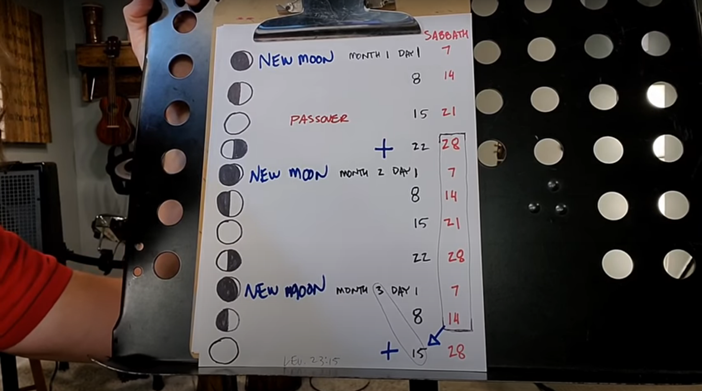 SABBATH
NEW MOON MONTH 1 DAY 1 7
8 14
PASSOVER 15 21
+ 22 28
NEW MOON MONTH 2 DAY 1 7
8 14
15 21
22 28
NEW MOON MONTH 3 DAY 1 7
8 14
+ 15 28
LEV. 23:15